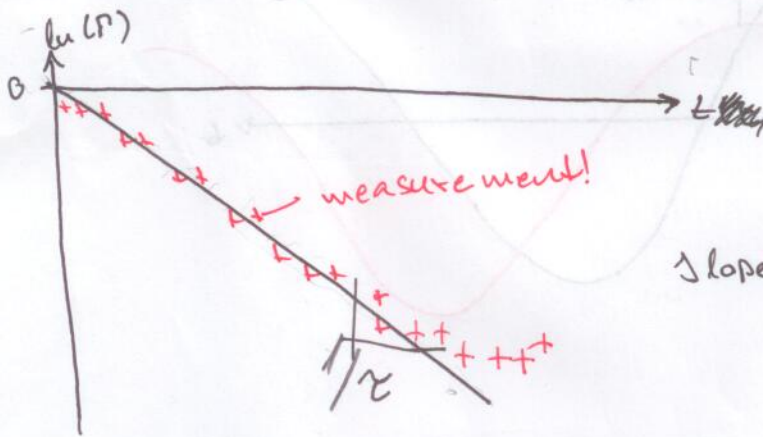 ln(P)
0
t
measurement!
Slope
τ